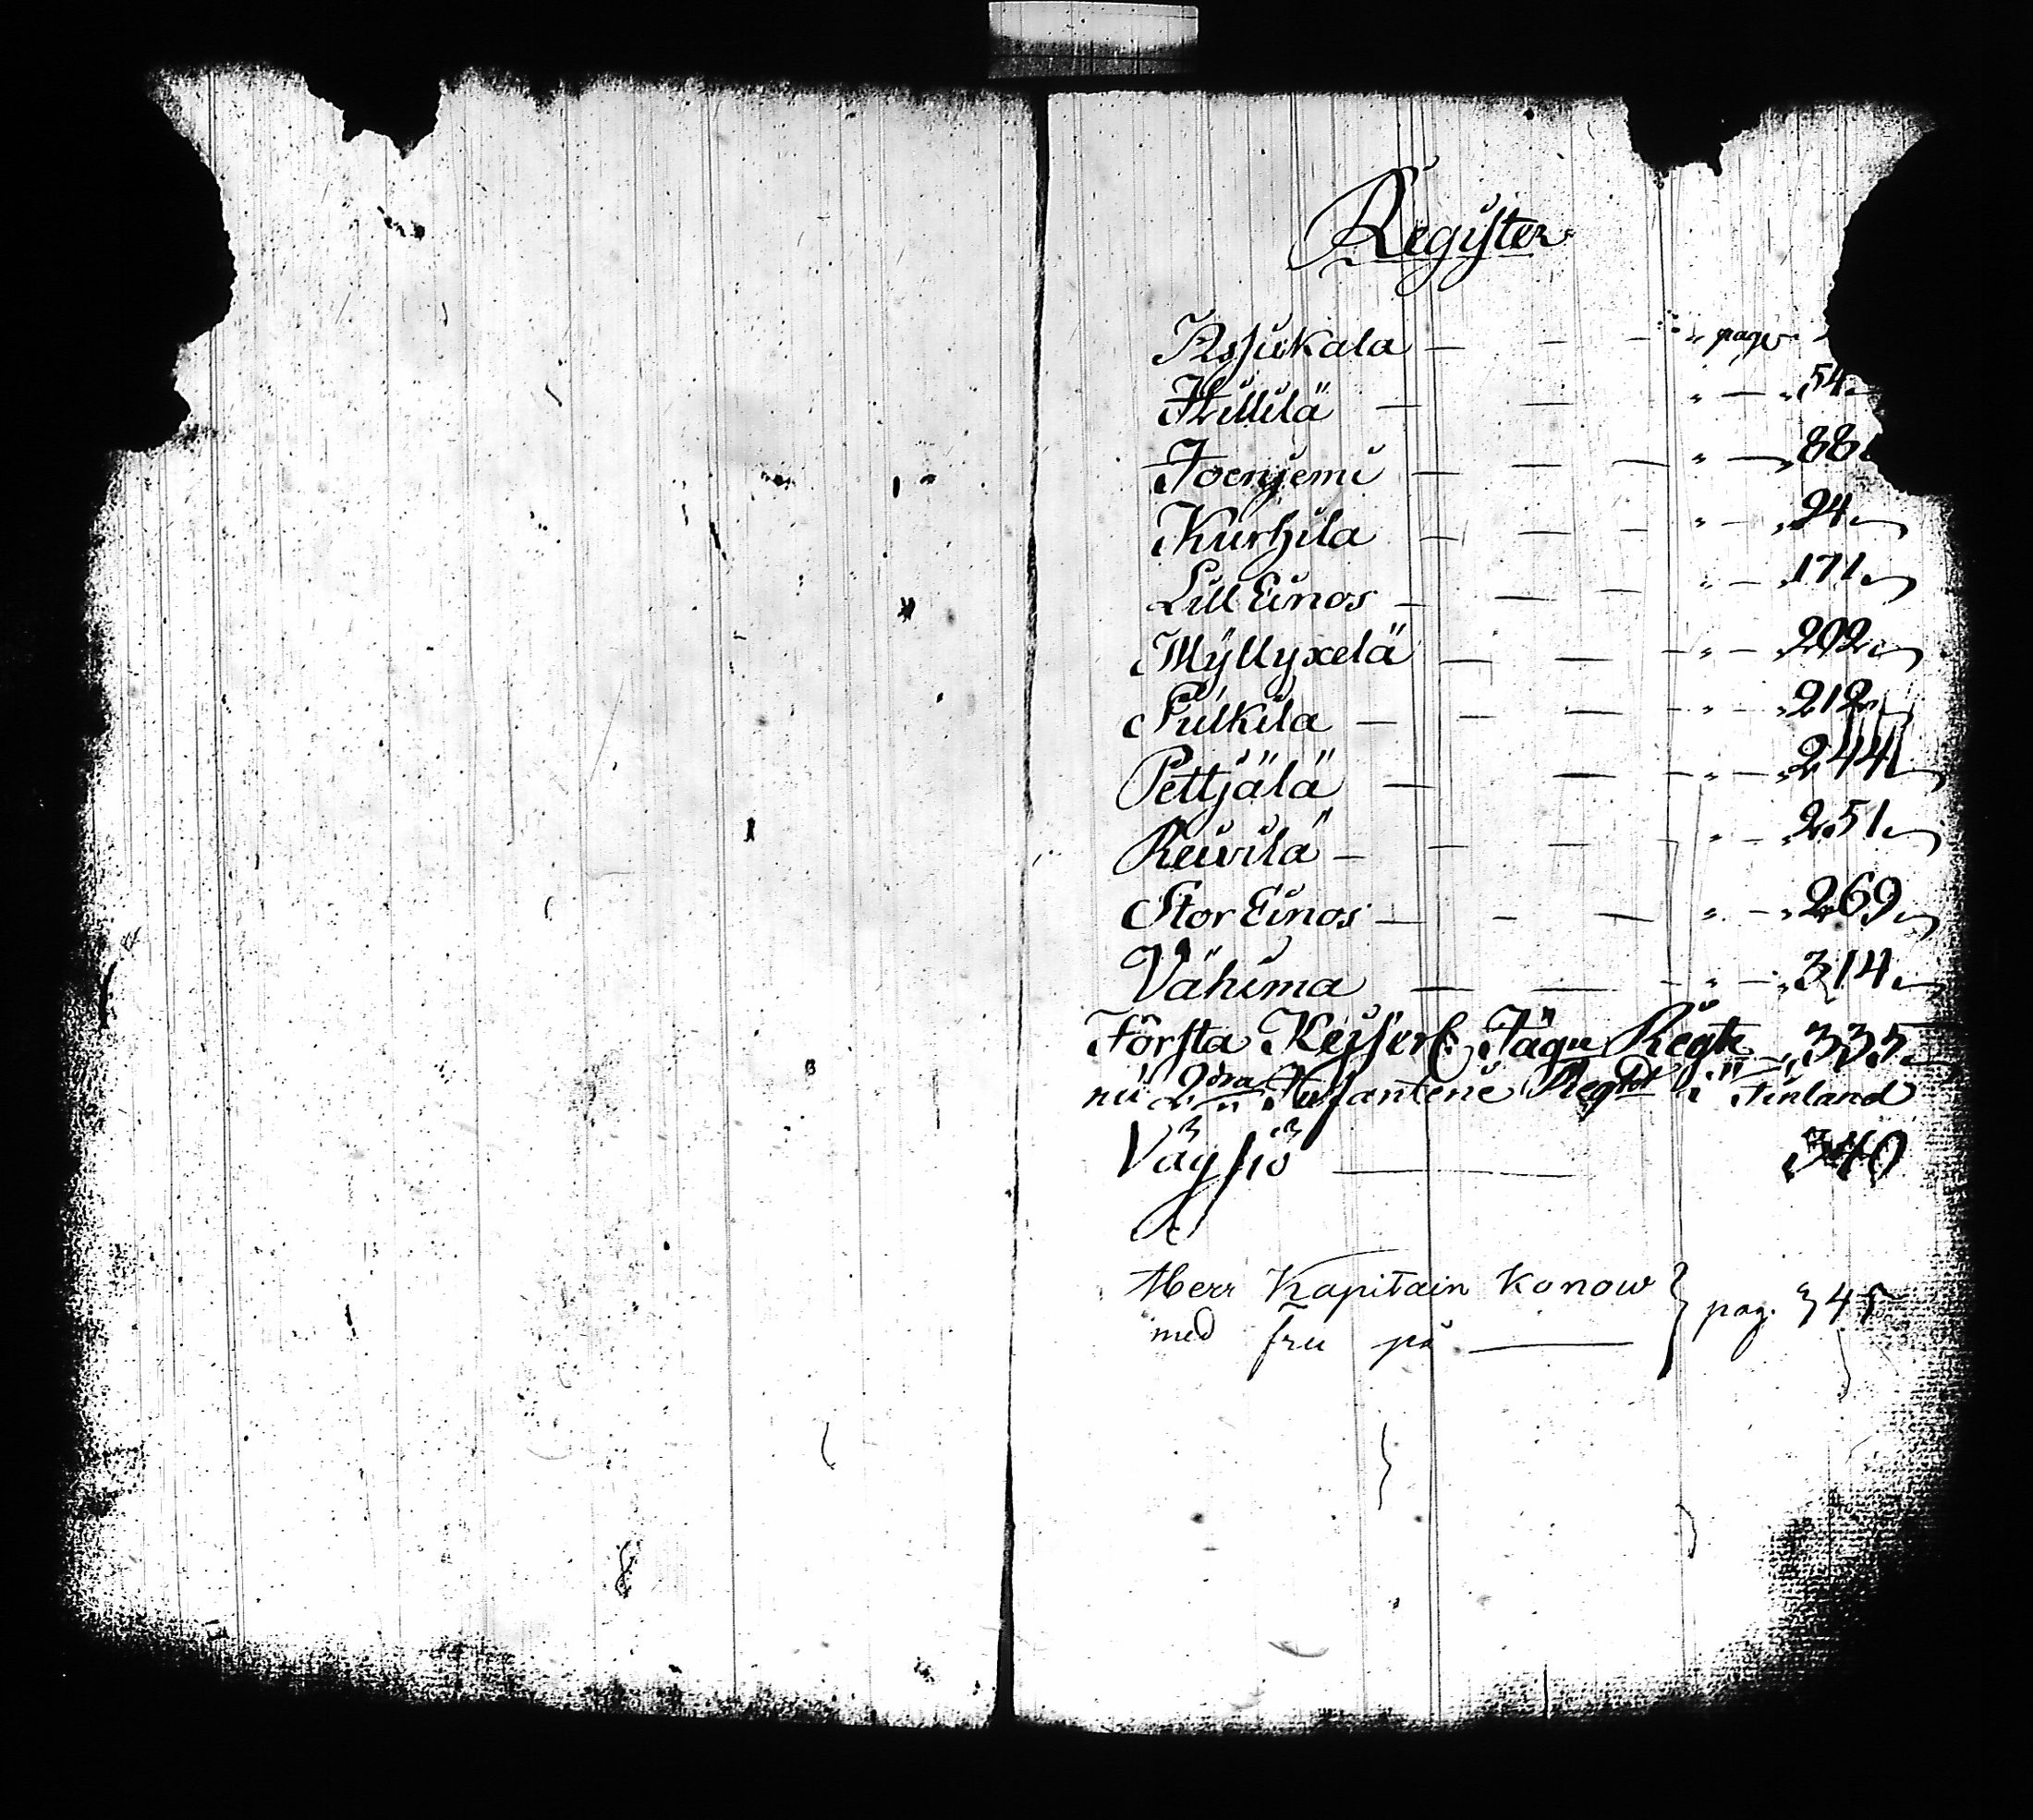 Register
Assikala — — — " page
Hillilä — — " — " 54.
Joenjemi — — — " — " 88.
Kurhila — — — " — " 94.
Lill Einos — — — " — " 171.
Myllyxelä — — — " — " 202.
Pulkila — — — — " — " 212.
Pettjälä — — — " — " 244.
Reivilä — — — — " — " 251.
Stor Einos — — — " — " 269.
Vähima — — — " — " 314.
Första Kejserl. Jäga Regte — " 335.
nu 2dra Infanterie Regtet i Finland
Vägsjö — 340
Herr Kapitain Konow } pag. 345
med fru på —